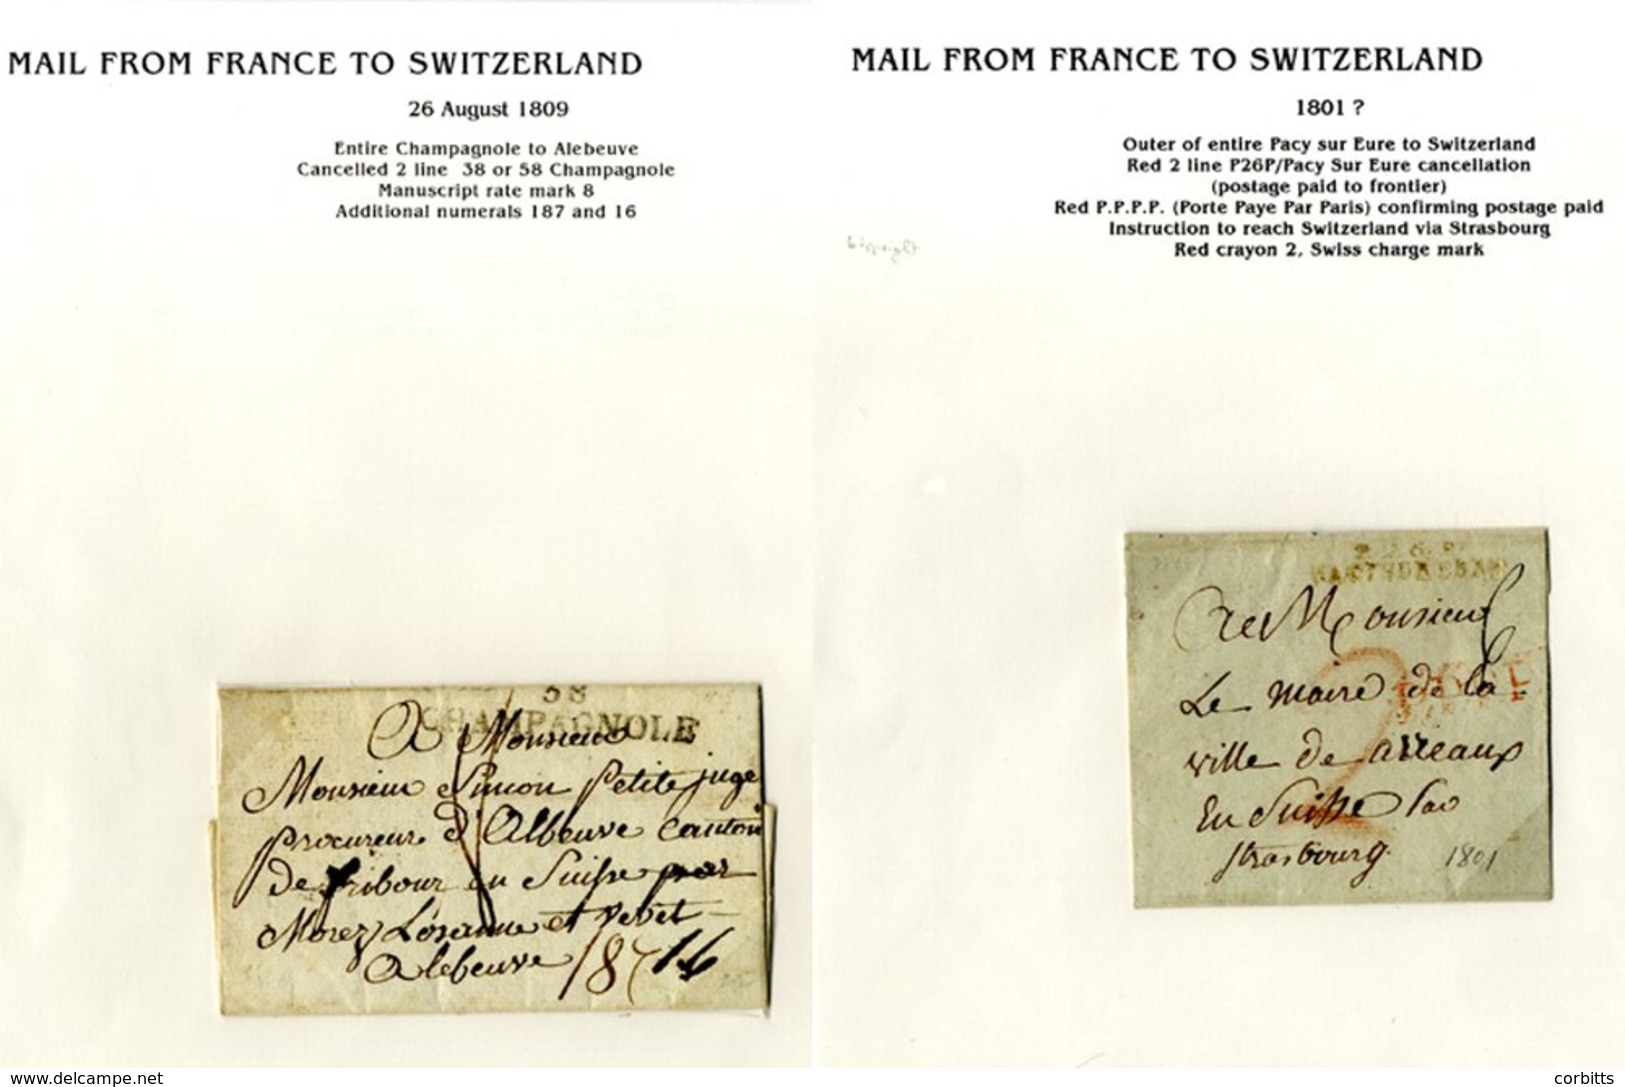 MAIL FROM FRANCE TO SWITZERLAND
26 August 1809
Entire Champagnole to Alebeuve
Cancelled 2 line 38 or 58 Champagnole
Manuscript rate mark 8
Additional numerals 187 and 16
58
CHAMPAGNOLE
A Monsieur
Monsieur Simon Petite juge
procureur d'Albeuve Canton
de fribour en Suisse par
Morez Losanne et Vevet
Alebeuve 187 16
MAIL FROM FRANCE TO SWITZERLAND
1801 ?
Outer of entire Pacy sur Eure to Switzerland
Red 2 line P26P/Pacy Sur Eure cancellation
(postage paid to frontier)
Red P.P.P.P. (Porte Paye Par Paris) confirming postage paid
Instruction to reach Switzerland via Strasbourg
Red crayon 2, Swiss charge mark
Monsieur
Le maire de la
ville de
En Suisse
strasbourg.
1801
www.delcampe.net
corbitts